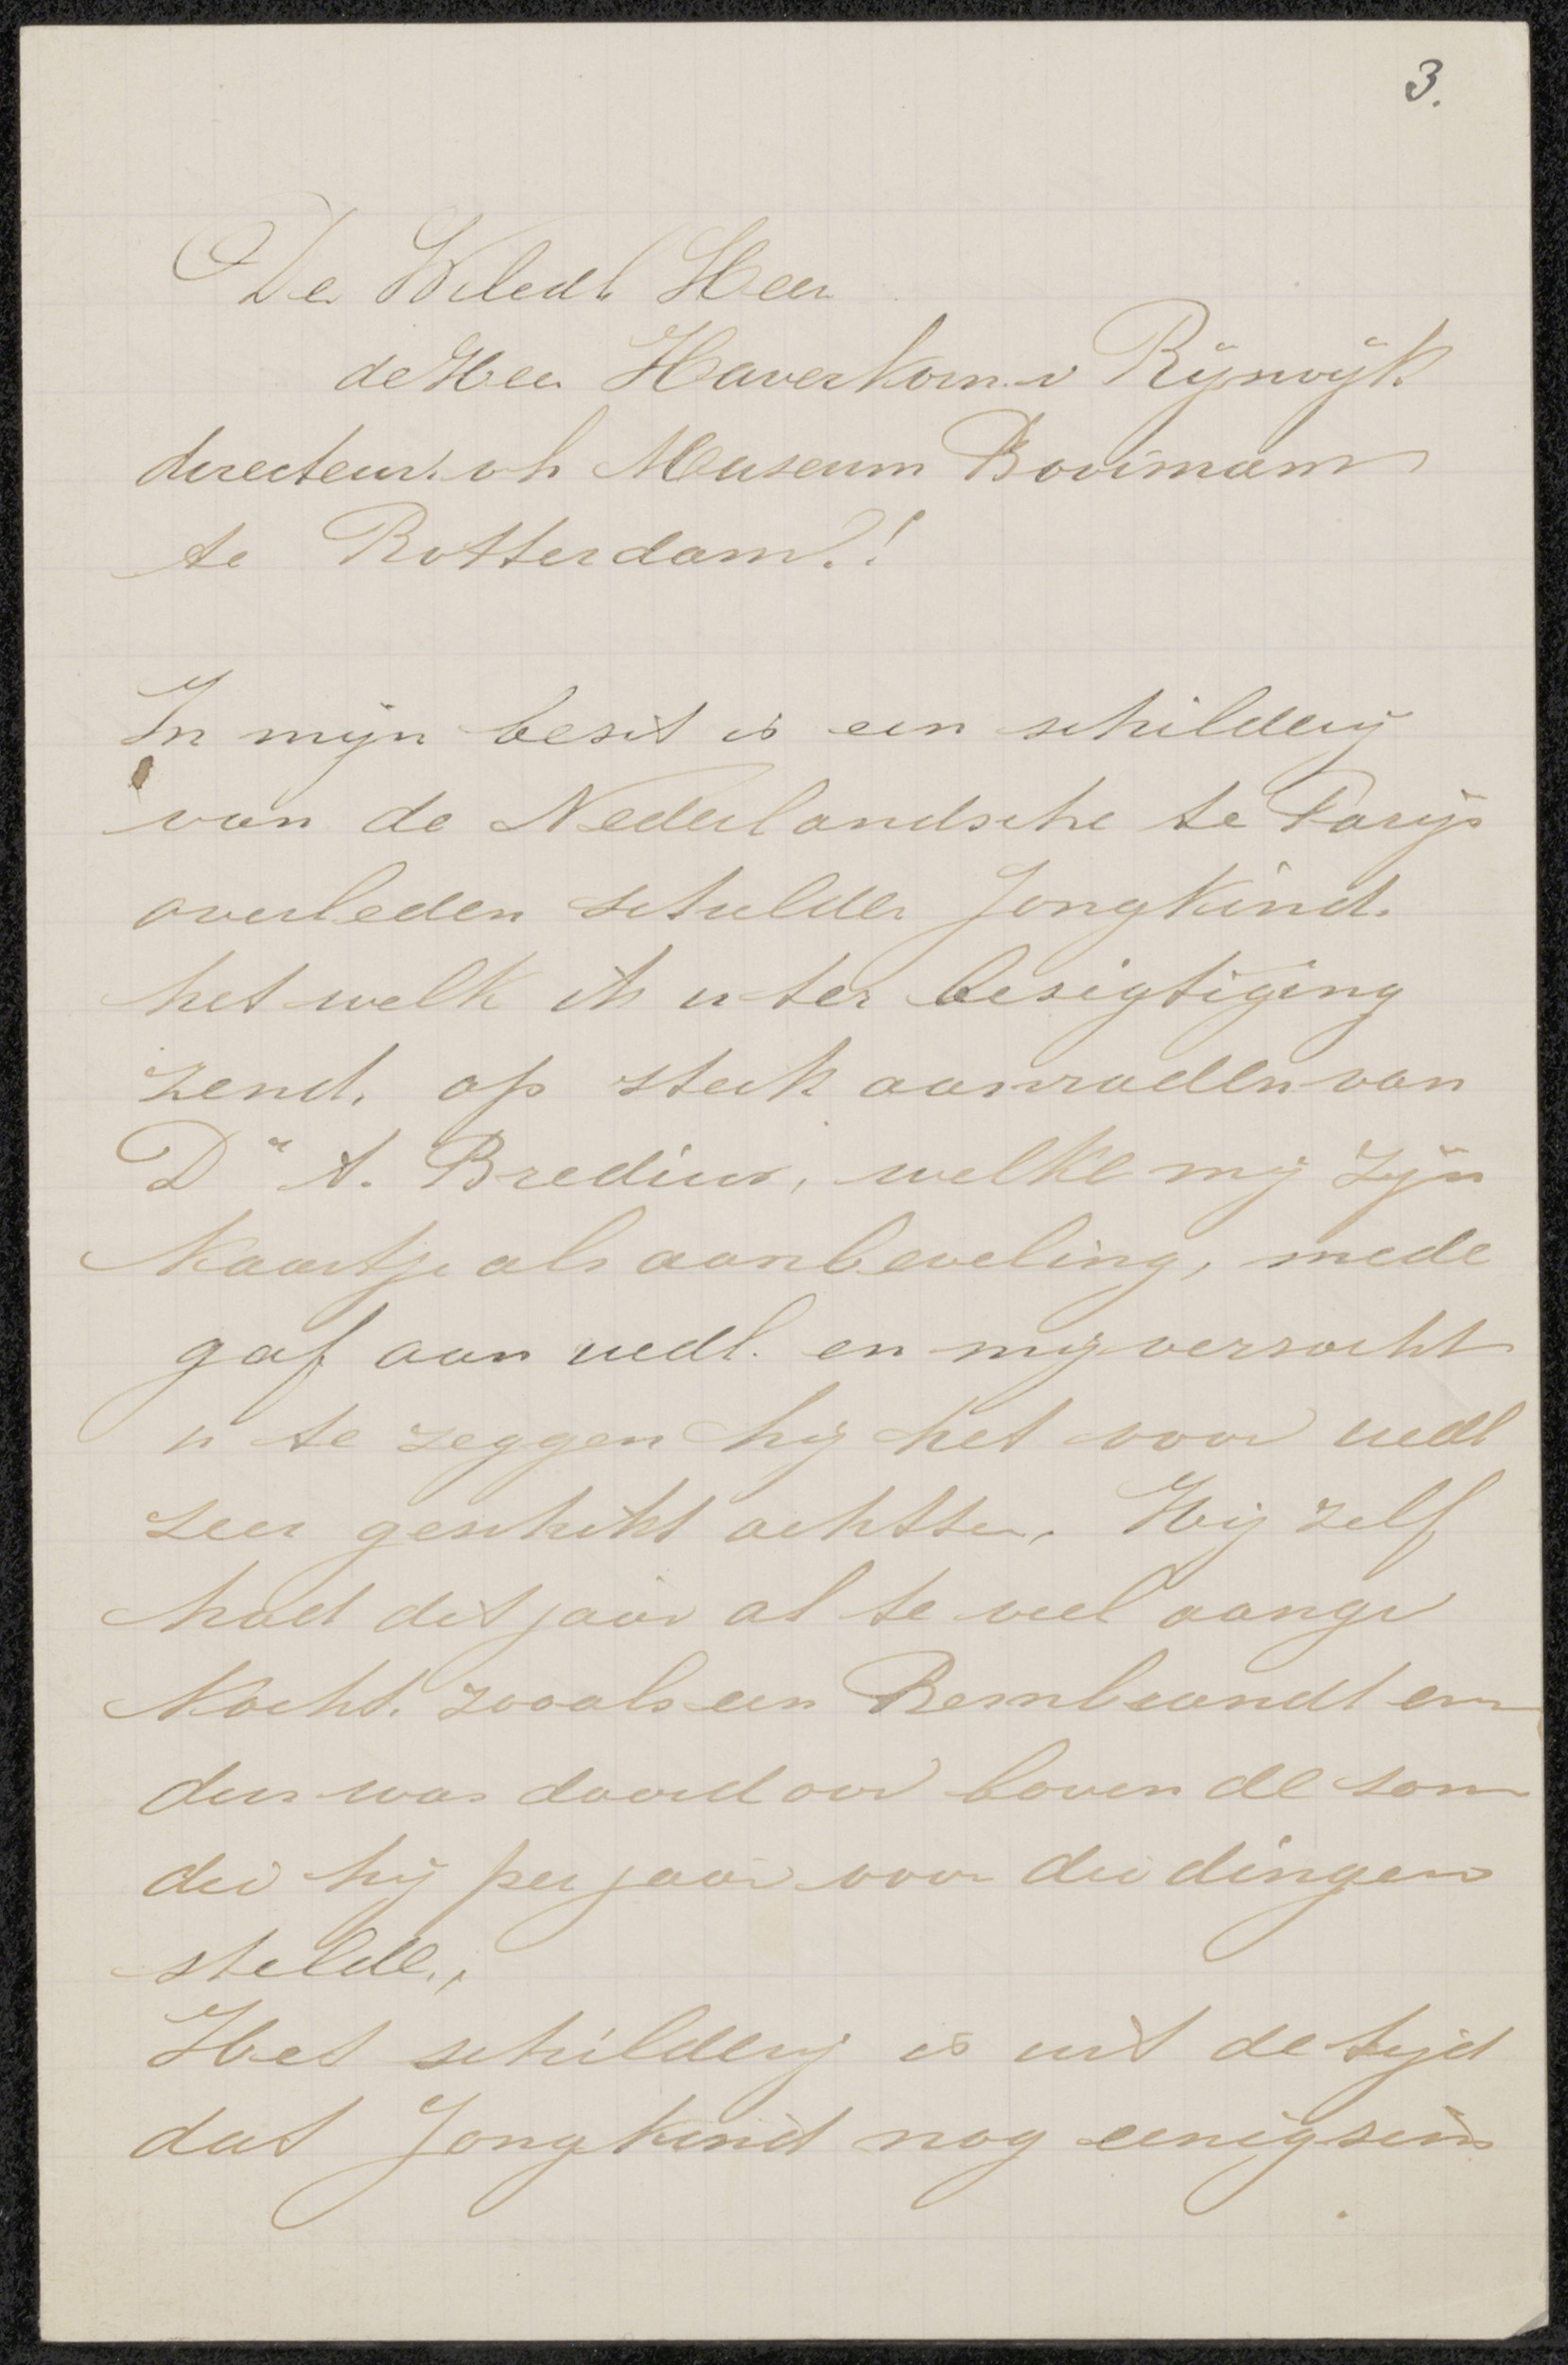 3.
De Weledl Heer
de Heer Haverkorn v Rijswijk
directeur. v h Museum Booimans
te Rotterdam.!
In mijn besit is een schilderij
van de Nederlandsche te Parijs
overleden schilder Jongkind.
het welk ik u ter besigtiging
zend. op sterk aanraden van
Dr A. Bredius, welke mij zijn
kaartje als aanbeveling, mede
gaf aan uedl. en mij versocht
u te zeggen hij het voor uedl
zeer geschikt achtte. Hij zelf
had dit jaar al te veel aange
kocht. zooals een Rembrandt en
dus was daardoor boven de som
die hij per jaar voor die dingen
stelde.,
Het schilderij is uit de tijd
dat Jongkind nog eenigsins